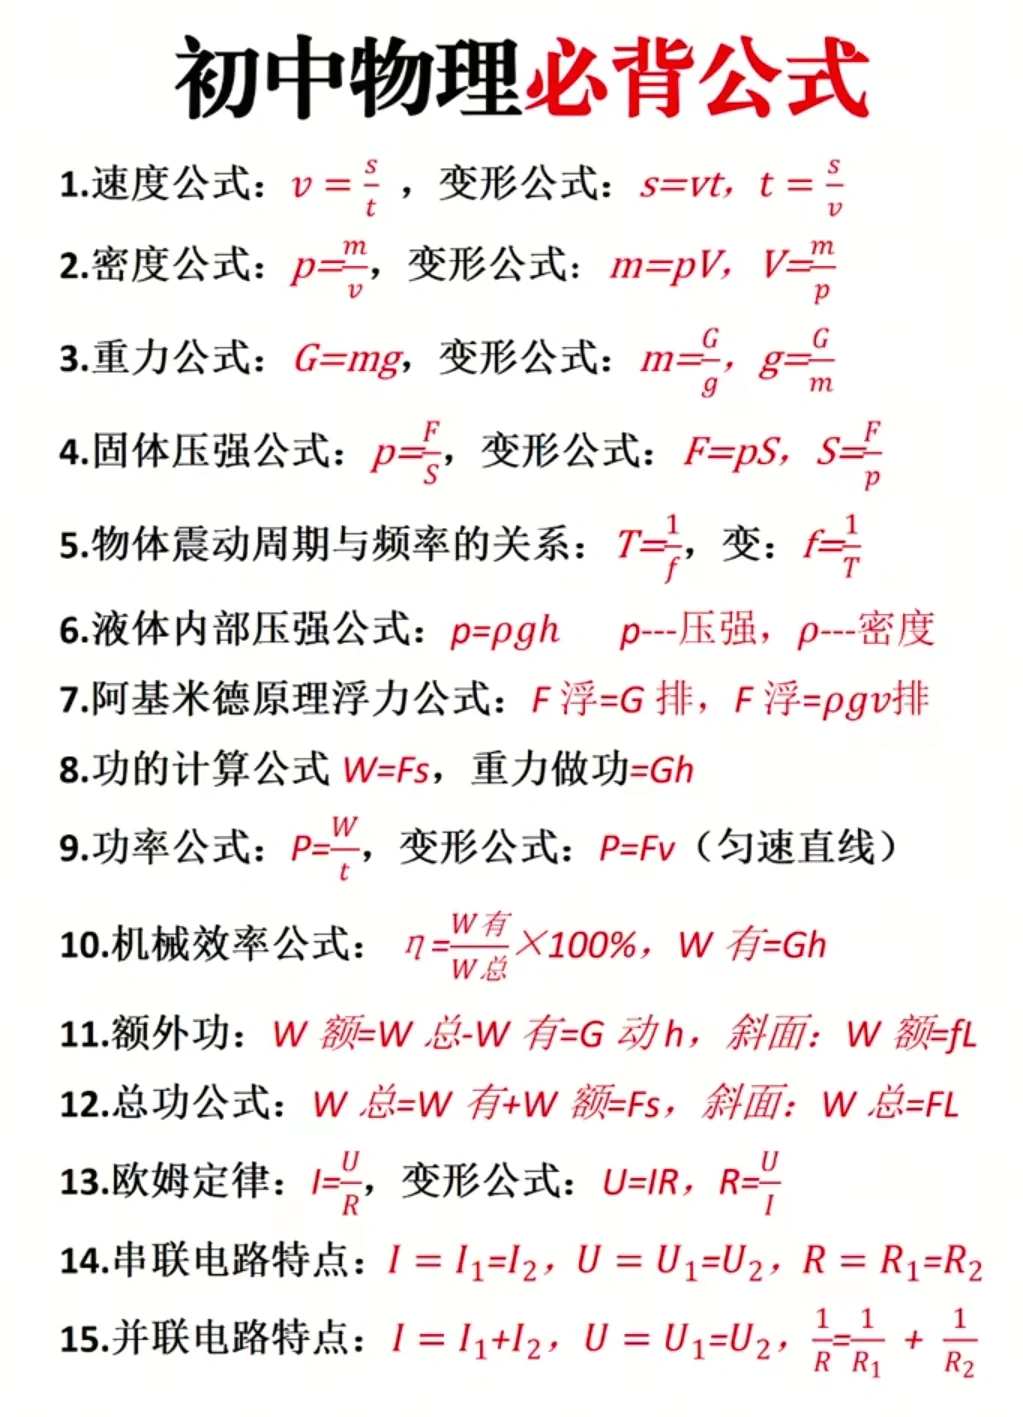 初中物理必背公式
1.速度公式：v = s/t ，变形公式：s=vt，t = s/v
2.密度公式：p=m/v，变形公式：m=pV，V=m/p
3.重力公式：G=mg，变形公式：m=G/g，g=G/m
4.固体压强公式：p=F/S，变形公式：F=pS，S=F/p
5.物体震动周期与频率的关系：T=1/f，变：f=1/T
6.液体内部压强公式：p=ρgh p---压强，ρ---密度
7.阿基米德原理浮力公式：F 浮=G 排，F 浮=ρgv排
8.功的计算公式 W=Fs，重力做功=Gh
9.功率公式：P=W/t，变形公式：P=Fv（匀速直线）
10.机械效率公式： η=W有/W总×100%，W 有=Gh
11.额外功：W 额=W 总-W 有=G 动h，斜面：W 额=fL
12.总功公式：W 总=W 有+W 额=Fs，斜面：W 总=FL
13.欧姆定律：I=U/R，变形公式：U=IR，R=U/I
14.串联电路特点：I = I₁=I₂，U = U₁=U₂，R = R₁=R₂
15.并联电路特点：I = I₁+I₂，U = U₁=U₂，1/R=1/R₁ + 1/R₂